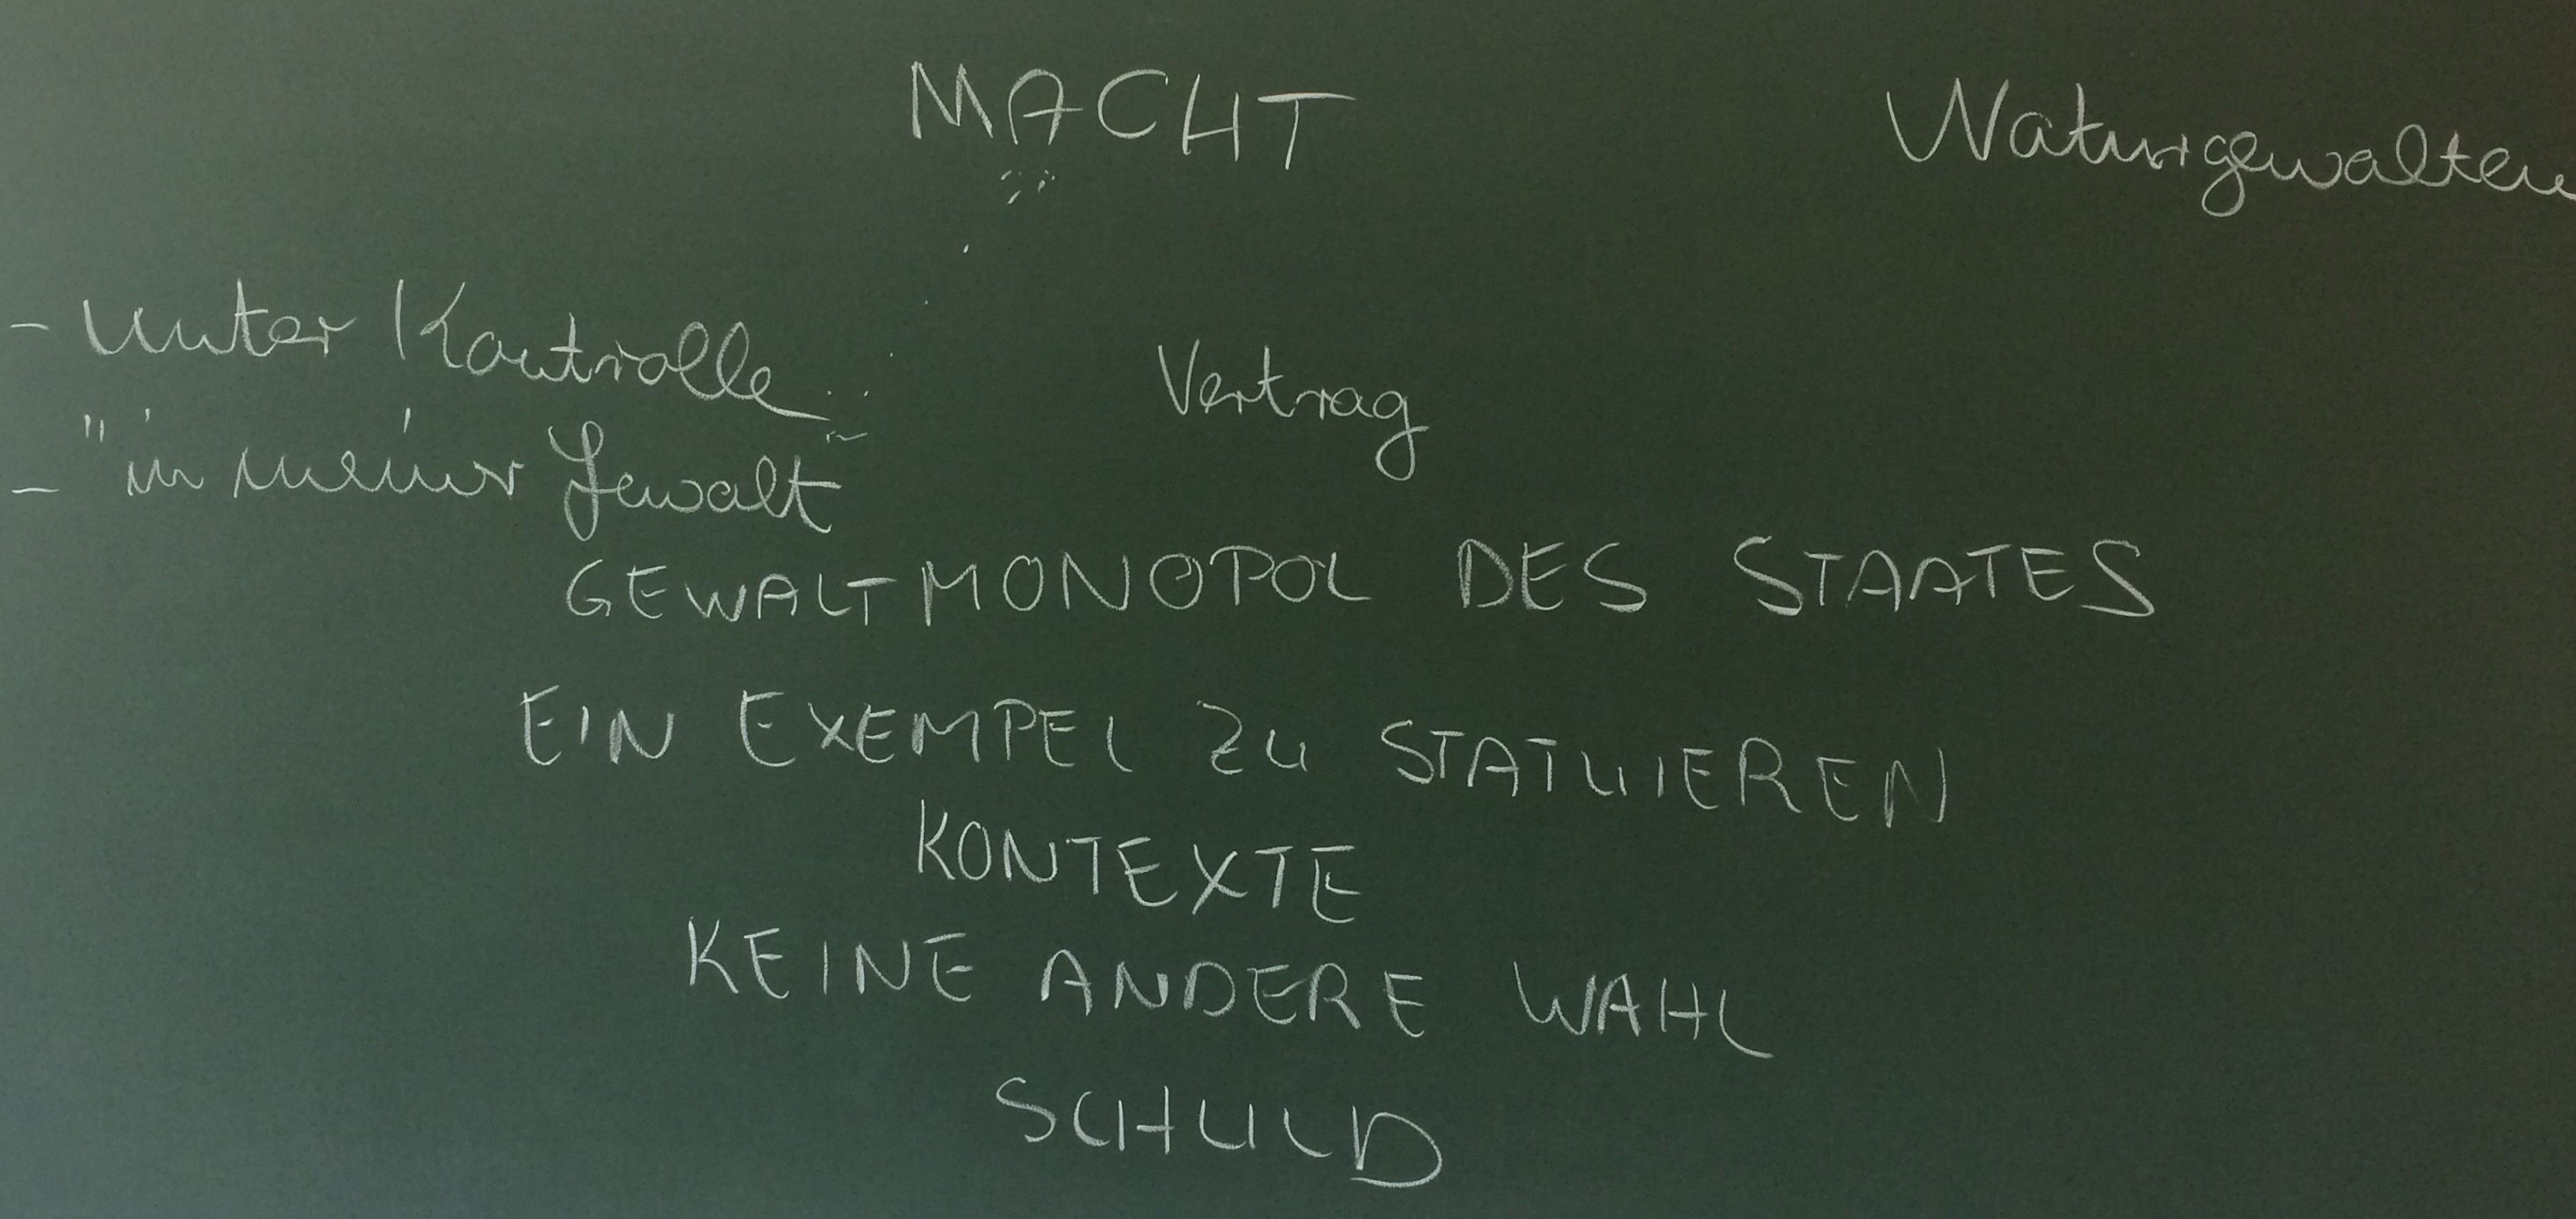 MACHT
Naturgewalten
- unter Kontrolle
Vertrag
- "in meiner Gewalt"
GEWALTMONOPOL DES STAATES
EIN EXEMPEL ZU STATUIEREN
KONTEXTE
KEINE ANDERE WAHL
SCHULD